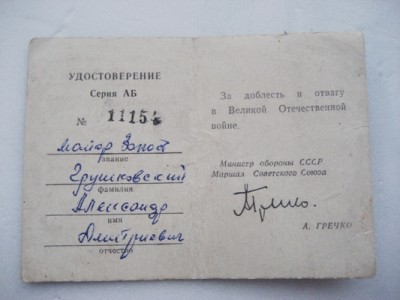 УДОСТОВЕРЕНИЕ
Серия АБ
№ 11154
майор запаса
звание
Грушковский
фамилия
Александр
имя
Дмитриевич
отчество
За доблесть и отвагу
в Великой Отечественной
войне.
Министр обороны СССР
Маршал Советского Союза
А. ГРЕЧКО